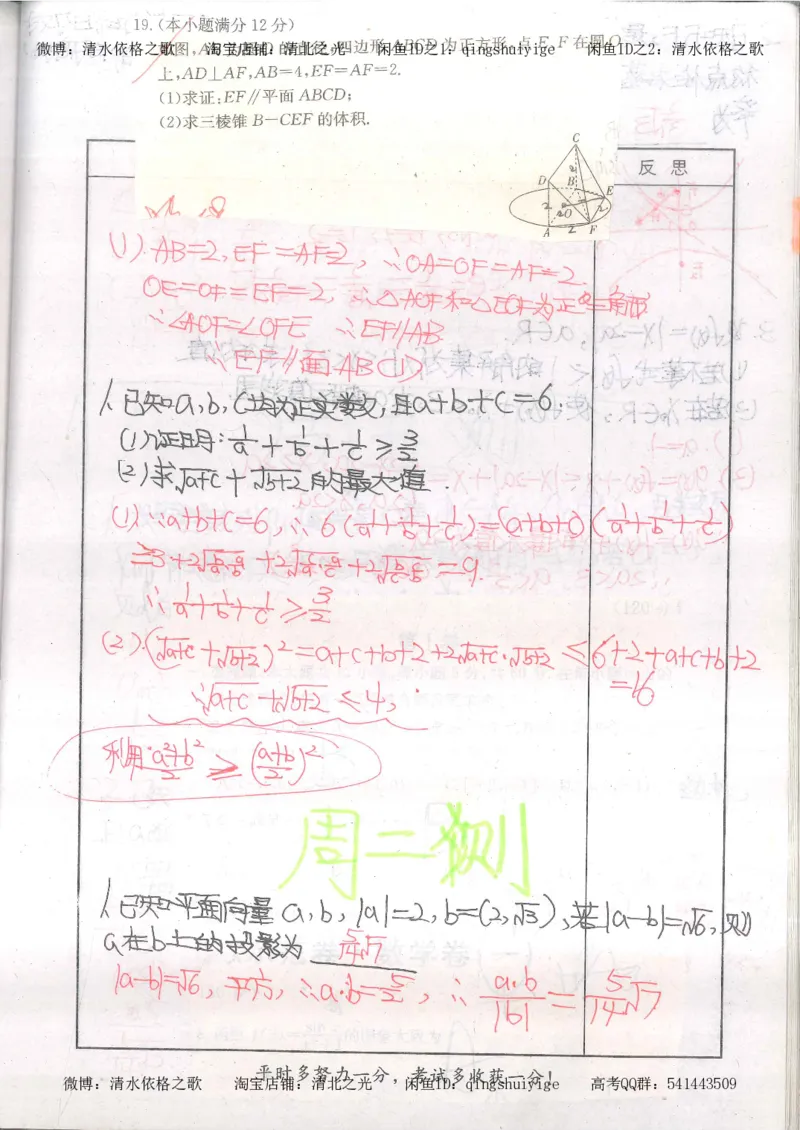 19.(本小题满分12分)
微博：清水依格之歌 淘宝店铺：清北之光 闲鱼ID之1：qingshuiyige 闲鱼ID之2：清水依格之歌
上,AD⊥AF,AB=4,EF=AF=2.
(1)求证:EF∥平面ABCD;
(2)求三棱锥B-CEF的体积.
反思
C
D B E
2 O 2
A 2 F
(1).AB=2,EF=AF=2,∵OA=OF=AF=2.
OE=OF=EF=2,∴△AOF和△EOF为正三角形
∵∠AOF=∠OFE ∴EF∥AB
∵EF∥面ABCD
1.已知a,b,c均为正实数,且a+b+c=6,
(1)证明:1/a+1/b+1/c≥3/2
(2)求√a+c+√b+2的最大值.
(1)∵a+b+c=6,∴6(1/a+1/b+1/c)=(a+b+c)(1/a+1/b+1/c)
≥3+2√b/a·a/b+2√c/a·a/c+2√c/b·b/c=9.
∴1/a+1/b+1/c≥3/2
(2).(√a+c+√b+2)²=a+c+b+2+2√a+c·√b+2≤6+2+a+c+b+2
=16
∴√a+c+√b+2≤4,
利用:a²+b²/2≥(a+b/2)²
周二测
1.已知平面向量a,b,|a|=2,b=(2,√3),若|a-b|=√6,则
a在b上的投影为 5/14√7
|a-b|=√6,平方,∴a·b=5/2,∴a·b/|b|=5/14√7
平时多努力一分，考试多收获一分！
微博：清水依格之歌 淘宝店铺：清北之光 闲鱼ID：qingshuiyige 高考QQ群：541443509